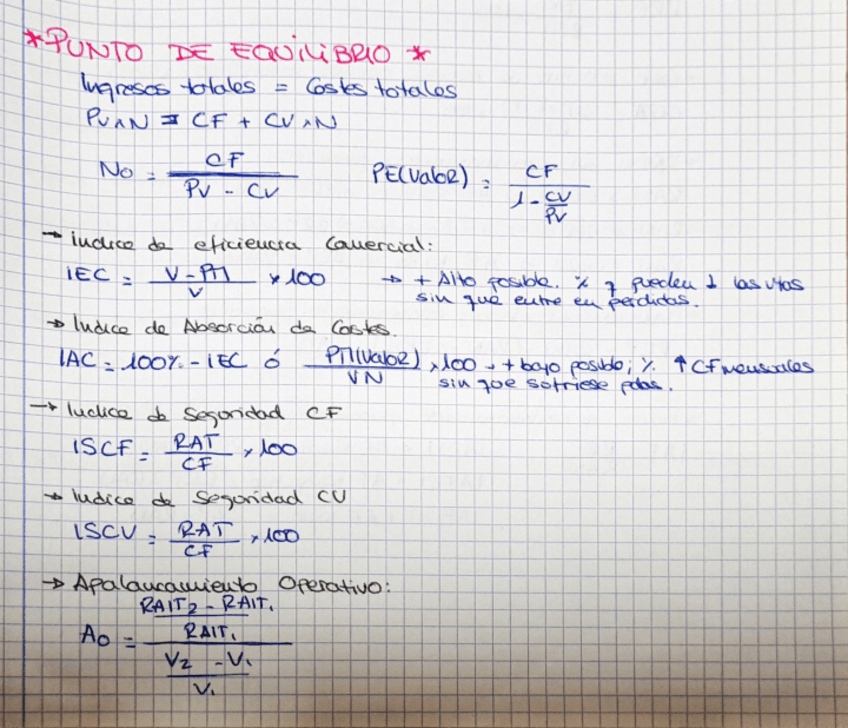 *PUNTO DE EQUILIBRIO *
Ingresos totales = Costes totales
PV x N = CF + CV x N
No = CF / (PV - CV)    PE(valor) = CF / (1 - CV/PV)
→ Indice de eficiencia Comercial:
IEC = (V - PM) / V x 100 → + Alto posible. % q pueden ↓ las vtas
sin que entre en pérdidas.
→ Indice de Absorción de Costes.
IAC = 100% - IEC ó PM(valor) / VN x 100 → + bajo posible; % ↑ CF mensuales
sin que sufriese pdas.
→ Indice de Seguridad CF
ISCF = RAT / CF x 100
→ Indice de Seguridad CV
ISCV = RAT / CF x 100
→ Apalancamiento Operativo:
Ao = ((RAIT2 - RAIT1) / RAIT1) / ((V2 - V1) / V1)